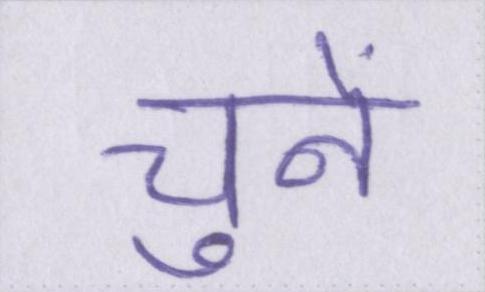 चुनें